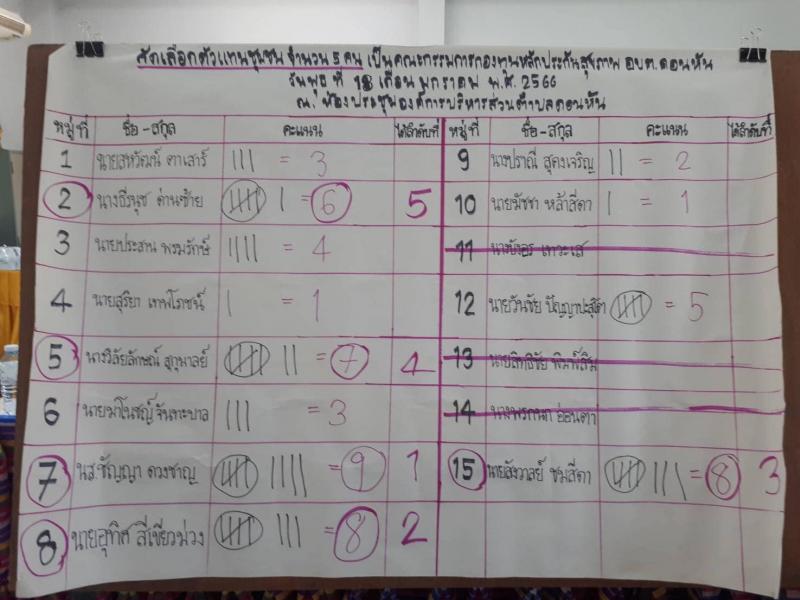 คัดเลือกตัวแทนชุมชน จำนวน 5 คน เป็นคณะกรรมการกองทุนหลักประกันสุขภาพ อบต.ดอนหัน
วันพุธ ที่ 18 เดือน มกราคม พ.ศ. 2566
ณ. ห้องประชุมองค์การบริหารส่วนตำบลดอนหัน
หมู่ที่ ชื่อ-สกุล คะแนน ได้ลำดับที่
1 นายสหวัฒณ์ ดาเสาร์ = 3
2 นางธีรนุช ด่านซ้าย = 6 5
3 นายประสาน พรมรักษ์ = 4
4 นายสุริยา เทพโภชน์ = 1
5 นางวิลัยลักษณ์ สุกุมาลย์ = 7 4
6 นายมาโนชญ์ จันทะบาล = 3
7 นส.ชัญญา ดวงชาญ = 9 1
8 นายอุทิศ สีเขียวม่วง = 8 2
หมู่ที่ ชื่อ-สกุล คะแนน ได้ลำดับที่
9 นางปราณี สุดงเจริญ = 2
10 นายมัชชา หล้าสีดา = 1
11 นางบังอร เทวะเส
12 นายวันชัย ปัญญาปะสุตา = 5
13 นายสิทธิชัย พิมพ์สิม
14 อ่อนตา
15 นายสังวาลย์ ชมสีดา = 8 3